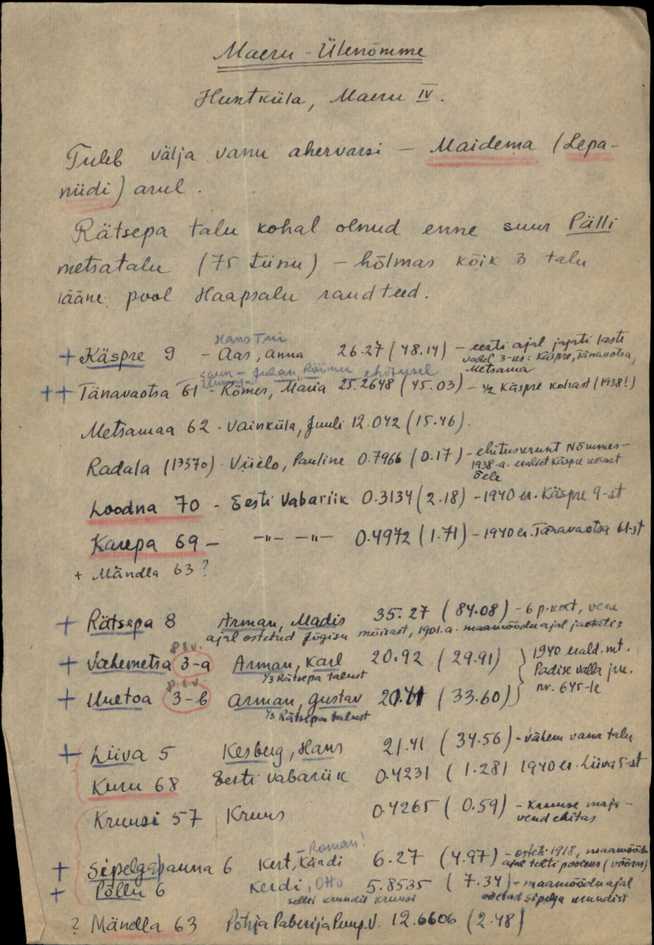 Maeru - Ülenõmme
Huntküla, Maeru IV.
Tuleb välja vanu ahervarsi - Maidema (Lepa-
niidi) arul.
Rätsepa talu kohal olnud enne suur Pälli
metsatalu (75 tiinu) - hõlmas kõik 3 talu
lääne pool Haapsalu raudteed.
Hans Trii
+ Käspre 9 - Aas, Anna 26.27 (48.14) - eesti ajal jagati laste
vahel 3-ks: Käspre, Tänavaotsa,
Metsama
saun - Juhan ehitusel
++ Tänavaotsa 61 - Rõmes, Maria 25.2648 (45.03) - 1/2 Käspre kohast (1938!)
Metsamaa 62 - Vainküla, Juuli 12.042 (15.46).
Radala (13570) - Viielo, Pauline 0.7966 (0.17) - ehituskrunt Nõmmes-
1938-a. eraldet Käspre kohast
õele
Loodna 70 - Eesti Vabariik 0.3134 (2.18) - 1940 er. Käspre 9-st
Karepa 69 - -"- -"- 0.4972 (1.71) - 1940 er. Tänavaotsa 61-st
+ Mändla 63?
+ Rätsepa 8 Arman, Madis 35.27 (84.08) - 6 p. koht, vene
ajal ostetud Jõgisu mõisast, 1901.a. maamõõdu ajal
+ Vahemetsa 3-a Arman, Karl 20.92 (29.91) 1940 erald. mt.
1/3 Rätsepa talust Padise valla
+ Uuetoa 3-b Arman, Gustav 20.41 (33.60) nr. 645-le
1/3 Rätsepa talust
+ Liiva 5 Kesberg, Hans 21.41 (34.56) - vähem vana talu
Kuru 68 Eesti Vabariik 0.4231 (1.28) 1940 er. Liiva 5-st
Kruusi 57 Kruus 0.4265 (0.59) - Kruuse maja -
vend ehitas
- Roman!
+ Sipelga 6 Kert, 6.27 (4.97) - osteti 1918, maamõõdu
ajal tehti pooleks (võõras)
+ Põllu 6 Kerdi, Otto 5.8535 (7.34) - maamõõdu ajal
sellel krundil Kruusi ostetud Sipelga krundist
? Mändla 63 Põhja Paberi ja Puup. V. 12.6606 (2.48)